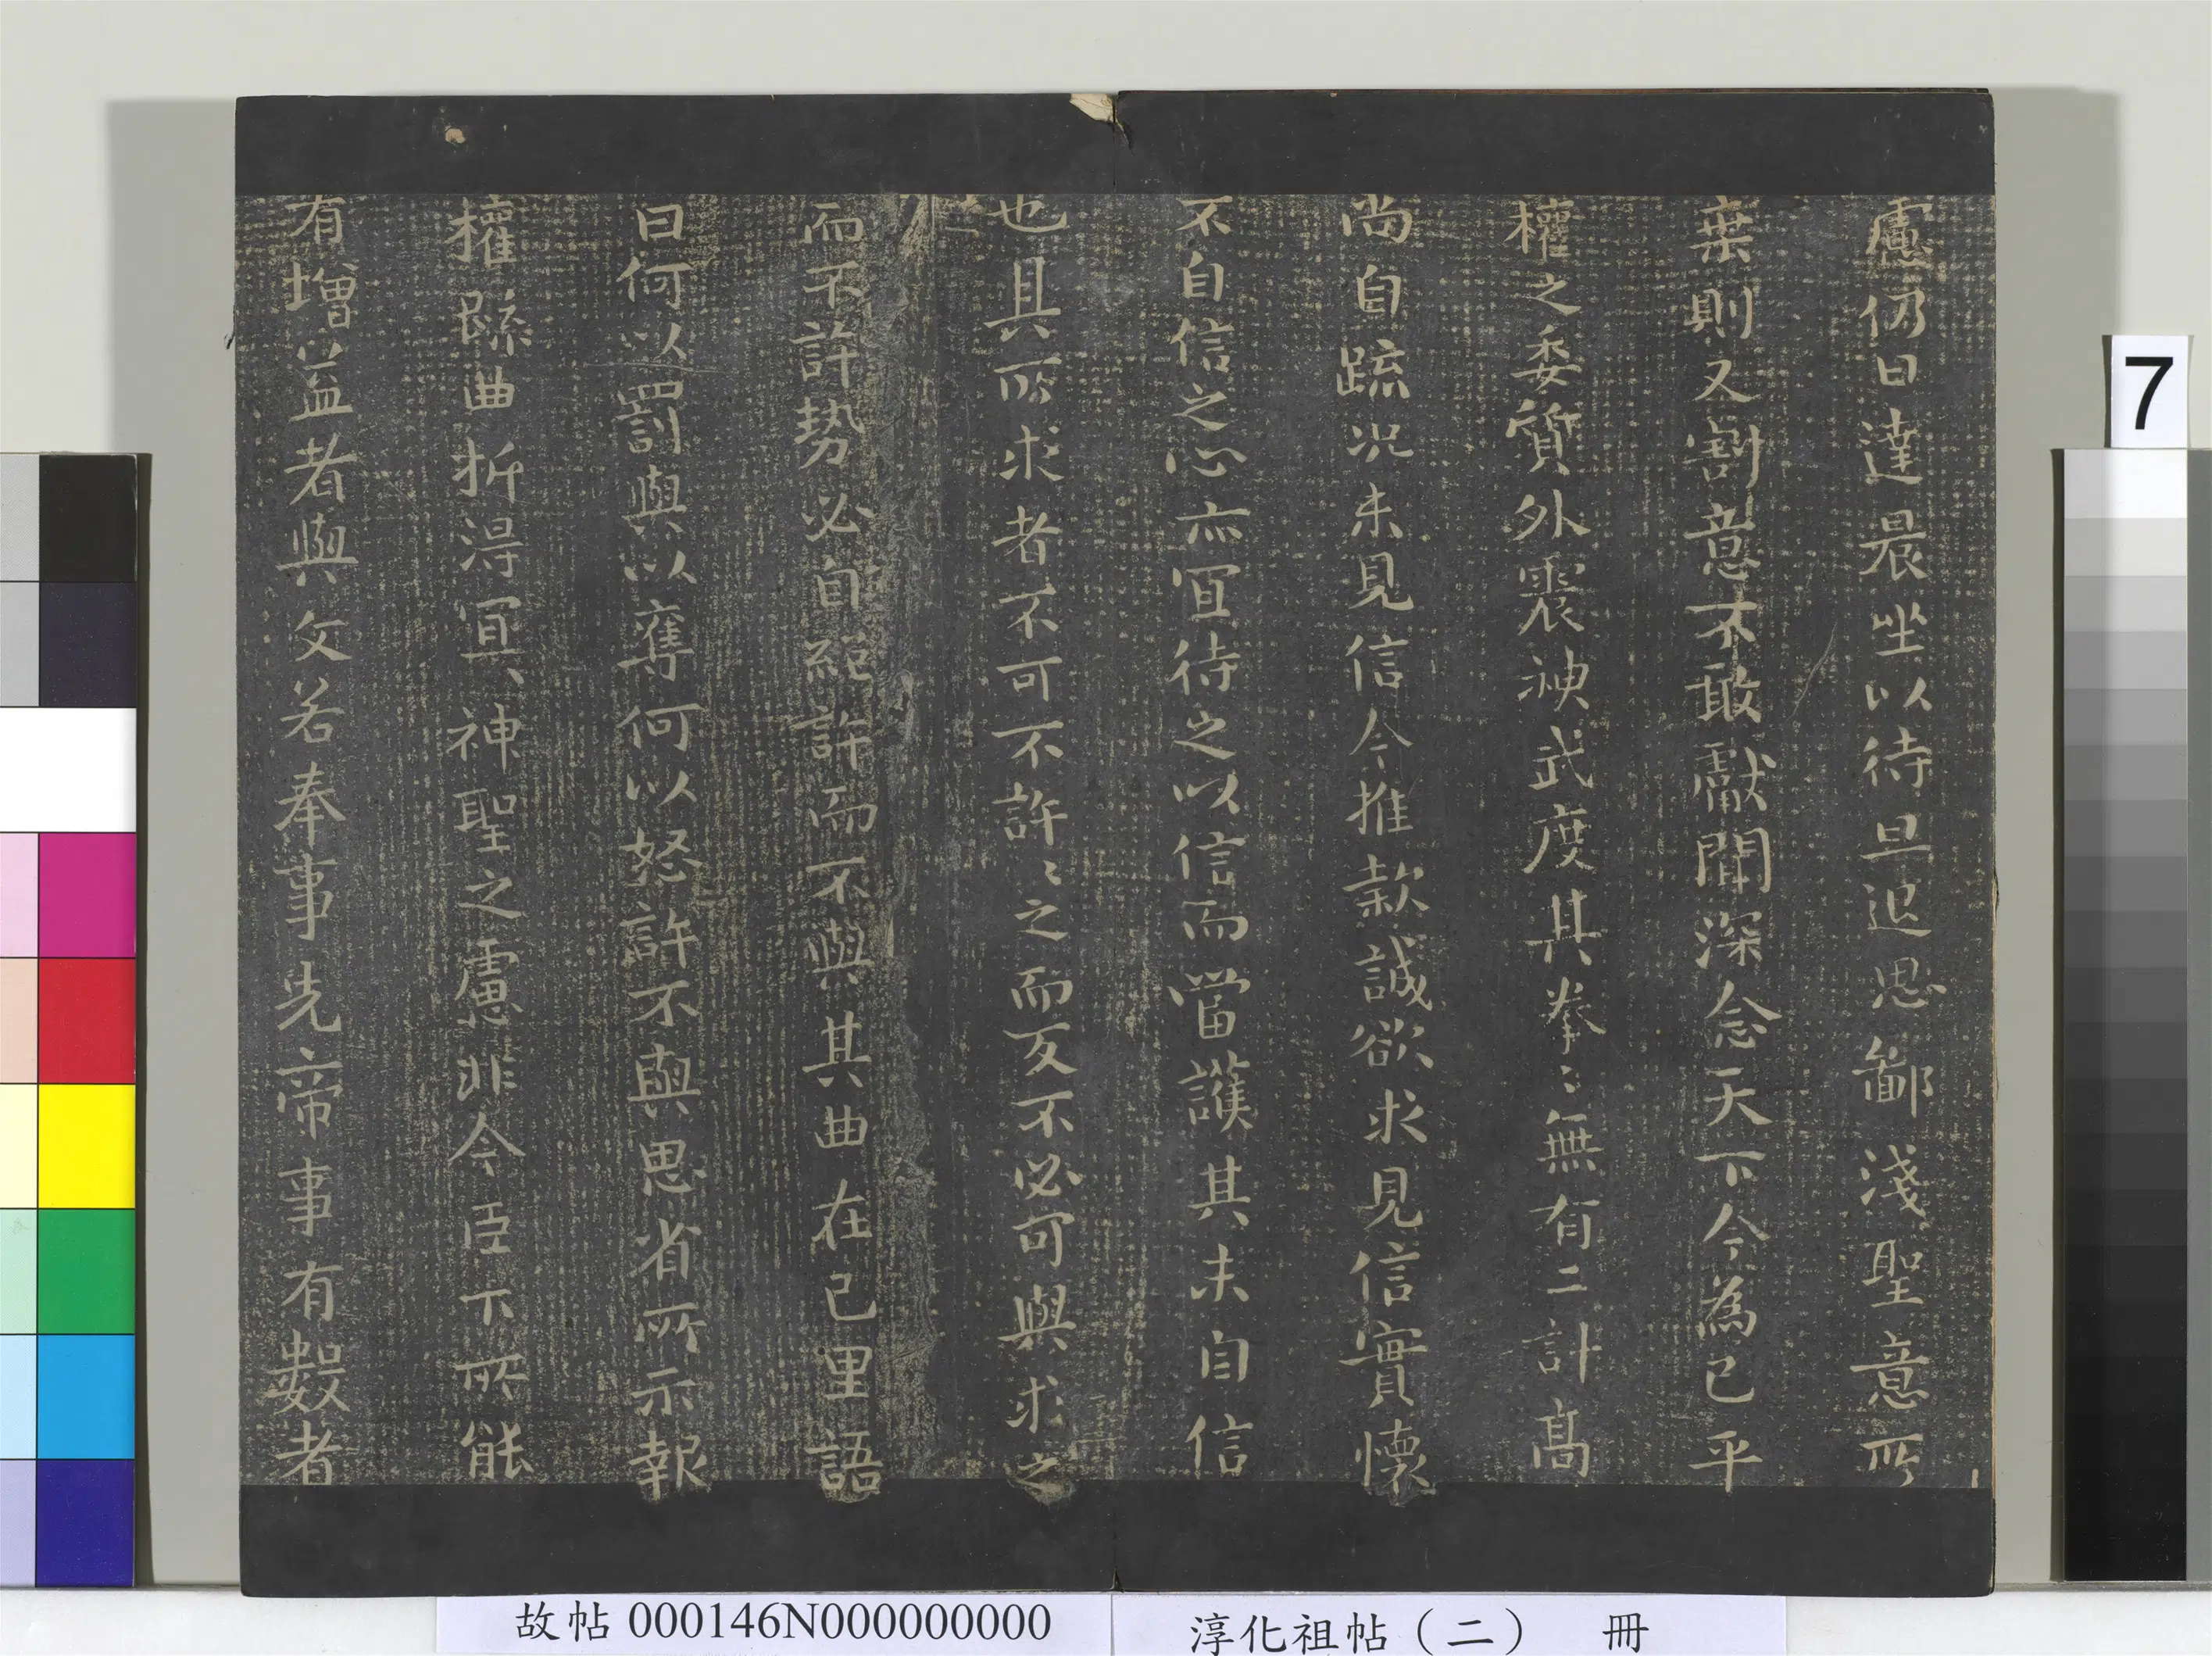 慮仍日達晨坐以待旦退思鄙淺聖意所
棄則又割意不敢獻聞深念天下今為已平
權之委質外震神武度其拳〻無有二計高
尚自疏況未見信今推款誠欲求見信實懷
不自信之心亦宜待之以信而當護其未自信
也其所求者不可不許〻之而反不必可與求之
而不許勢必自絕許而不與其曲在己里語
曰何以罰與以奪何以怒許不與思省所示報
權疏曲折得宜神聖之慮非今臣下所能
有增益者與文若奉事先帝事有數者
7
故帖 000146N000000000
淳化祖帖（二） 冊